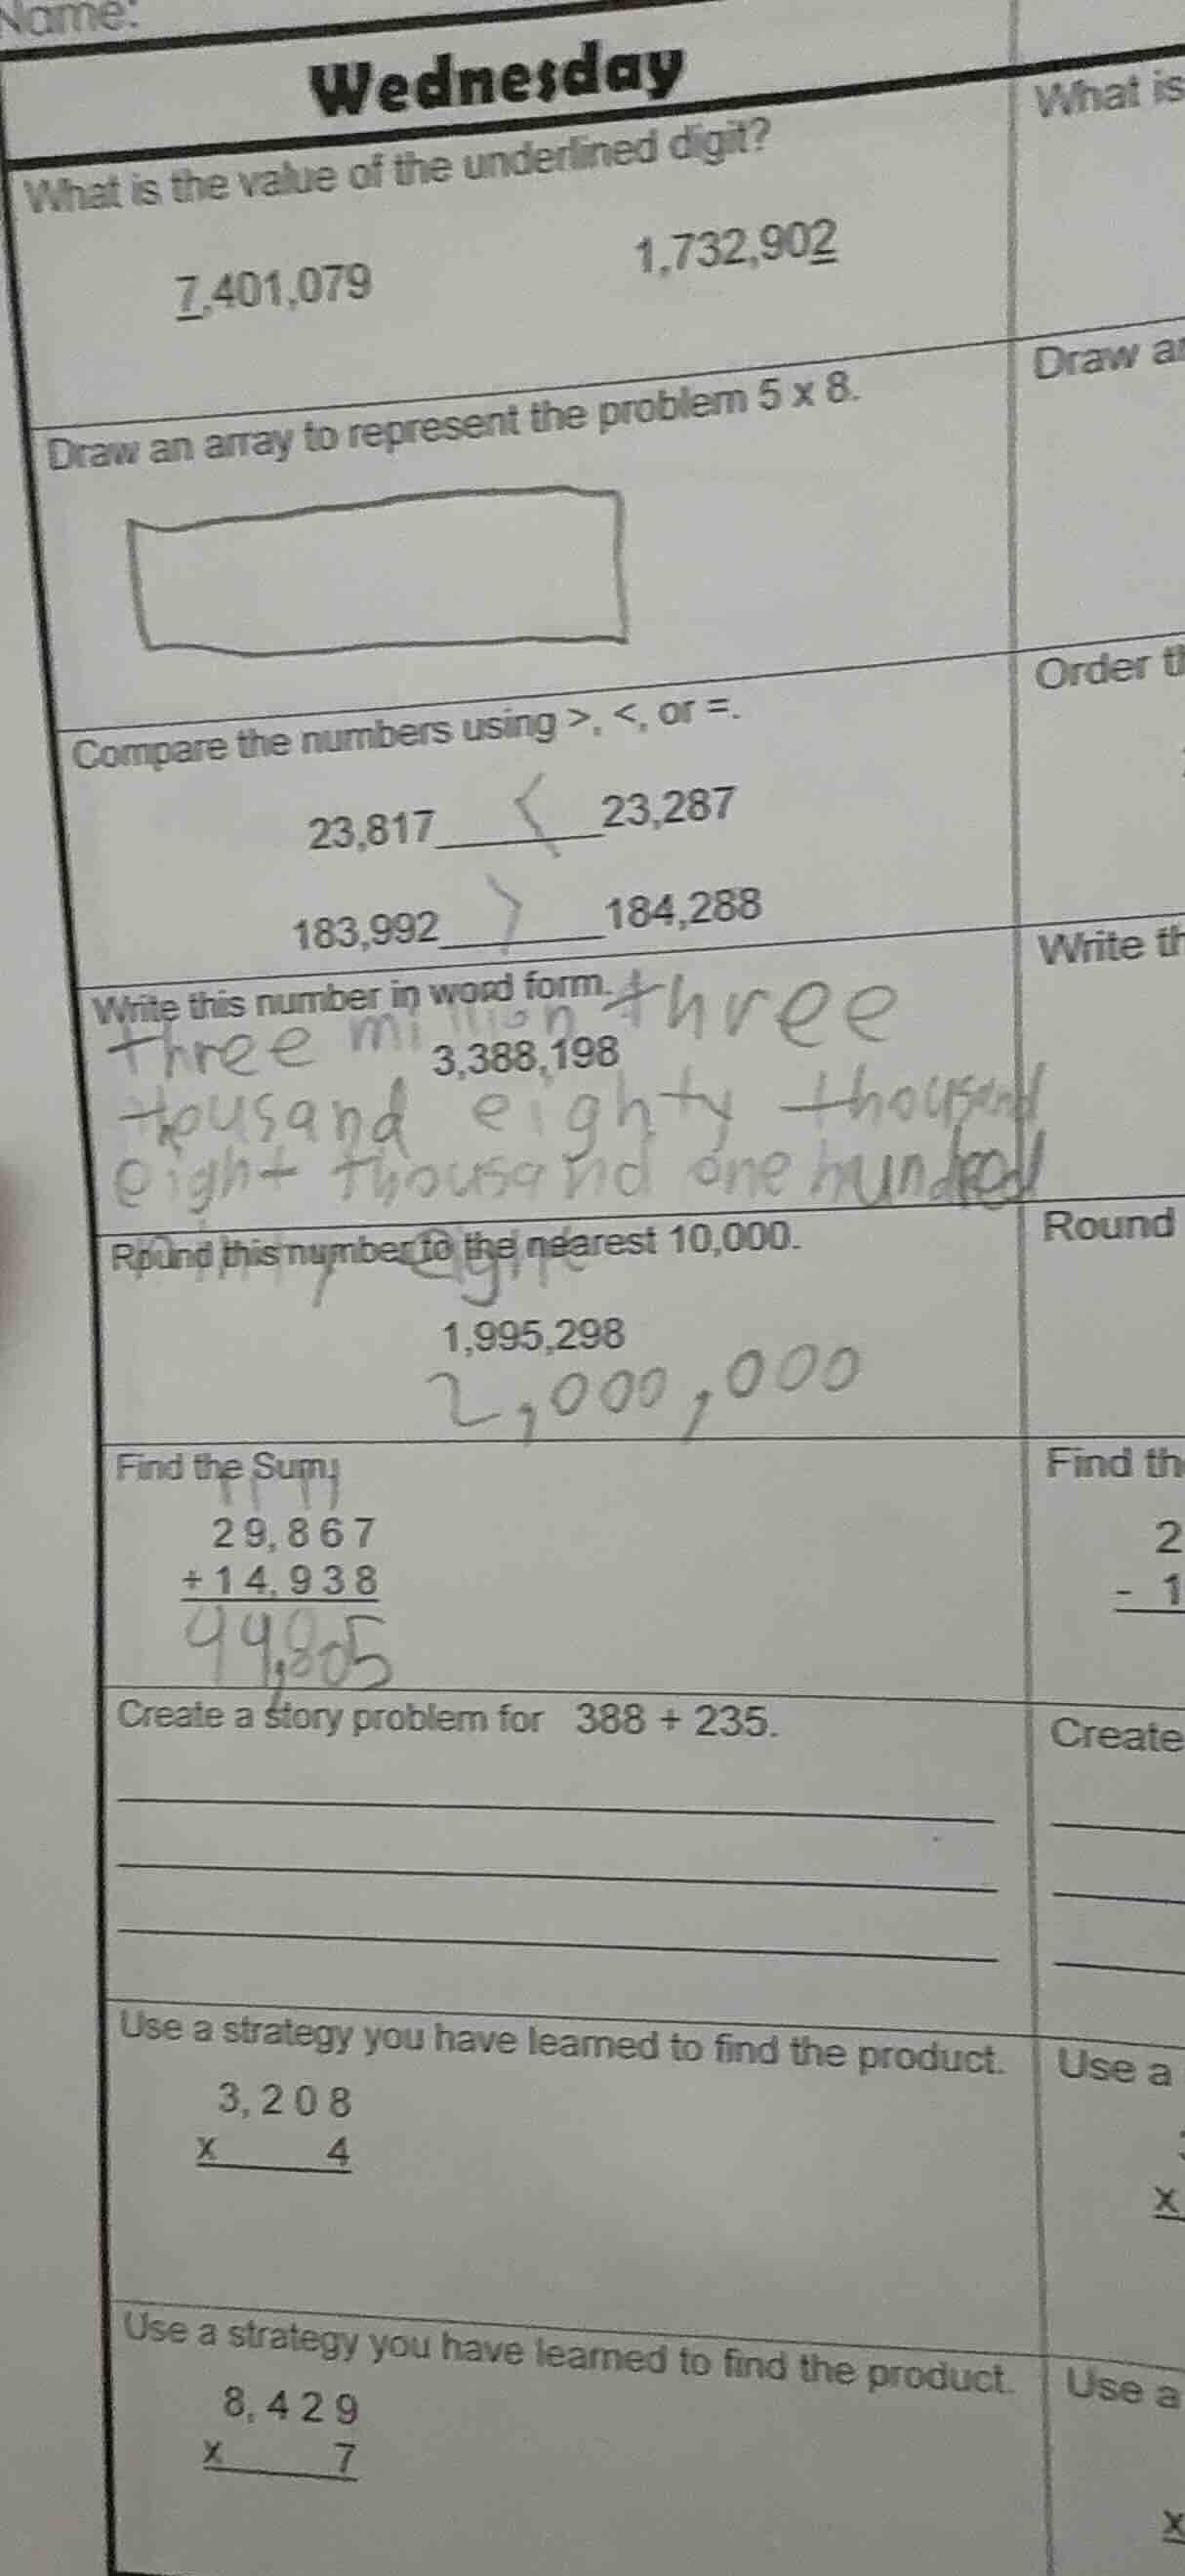 Name:
Wednesday
What is the value of the underlined digit?
7,401,079 1,732,902
Draw an array to represent the problem 5 x 8.
Compare the numbers using >, <, or =.
23,817 < 23,287
183,992 > 184,288
Write this number in word form.
three million three
3,388,198
thousand eighty thousand
eight thousand one hundred
Round this number to the nearest 10,000.
1,995,298
2,000,000
Find the Sum.
29,867
+14,938
44,805
Create a story problem for 388 + 235.
Use a strategy you have learned to find the product.
3,208
x 4
Use a strategy you have learned to find the product.
8,429
x 7
What is
Draw
Order
Write
Round
Find
2
- 1
Create
Use a
x
Use a
x